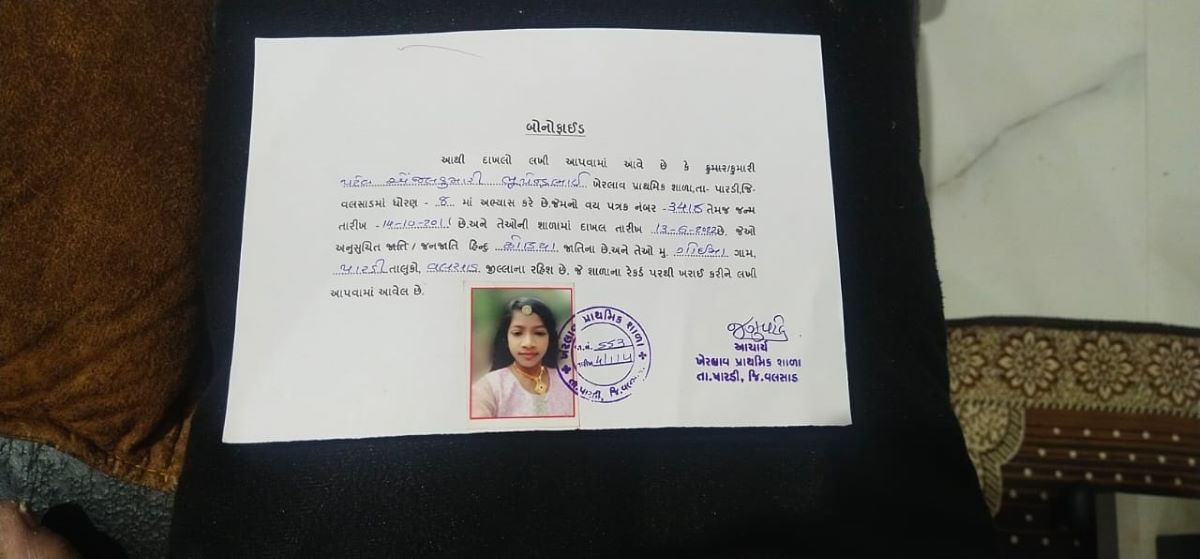 બોનોફાઈડ
આથી દાખલો લખી આપવામાં આવે છે કે કુમાર/કુમારી
પટેલ એંજલકુમારી ભુપેન્દ્રભાઈ ખેરલાવ પ્રાથમિક શાળા,તા- પારડી,જિ-
વલસાડમાં ધોરણ - 8 માં અભ્યાસ કરે છે.જેમનો વય પત્રક નંબર - 3418 તેમજ જન્મ
તારીખ - 14-10-2011 છે.અને તેઓની શાળામાં દાખલ તારીખ 13-6-2022 છે. જેઓ
અનુસુચિત જાતિ / જનજાતિ હિન્દુ જાતિના છે.અને તેઓ મુ. ગામ,
પારડી તાલુકો, વલસાડ જીલ્લાના રહિશ છે. જે શાળાના રેકર્ડ પરથી ખરાઈ કરીને લખી
આપવામાં આવેલ છે.
ખેરલાવ પ્રાથમિક શાળા
553
તારીખ
તા.પારડી, જિ.
આચાર્ય
ખેરલાવ પ્રાથમિક શાળા
તા.પારડી, જિ.વલસાડ